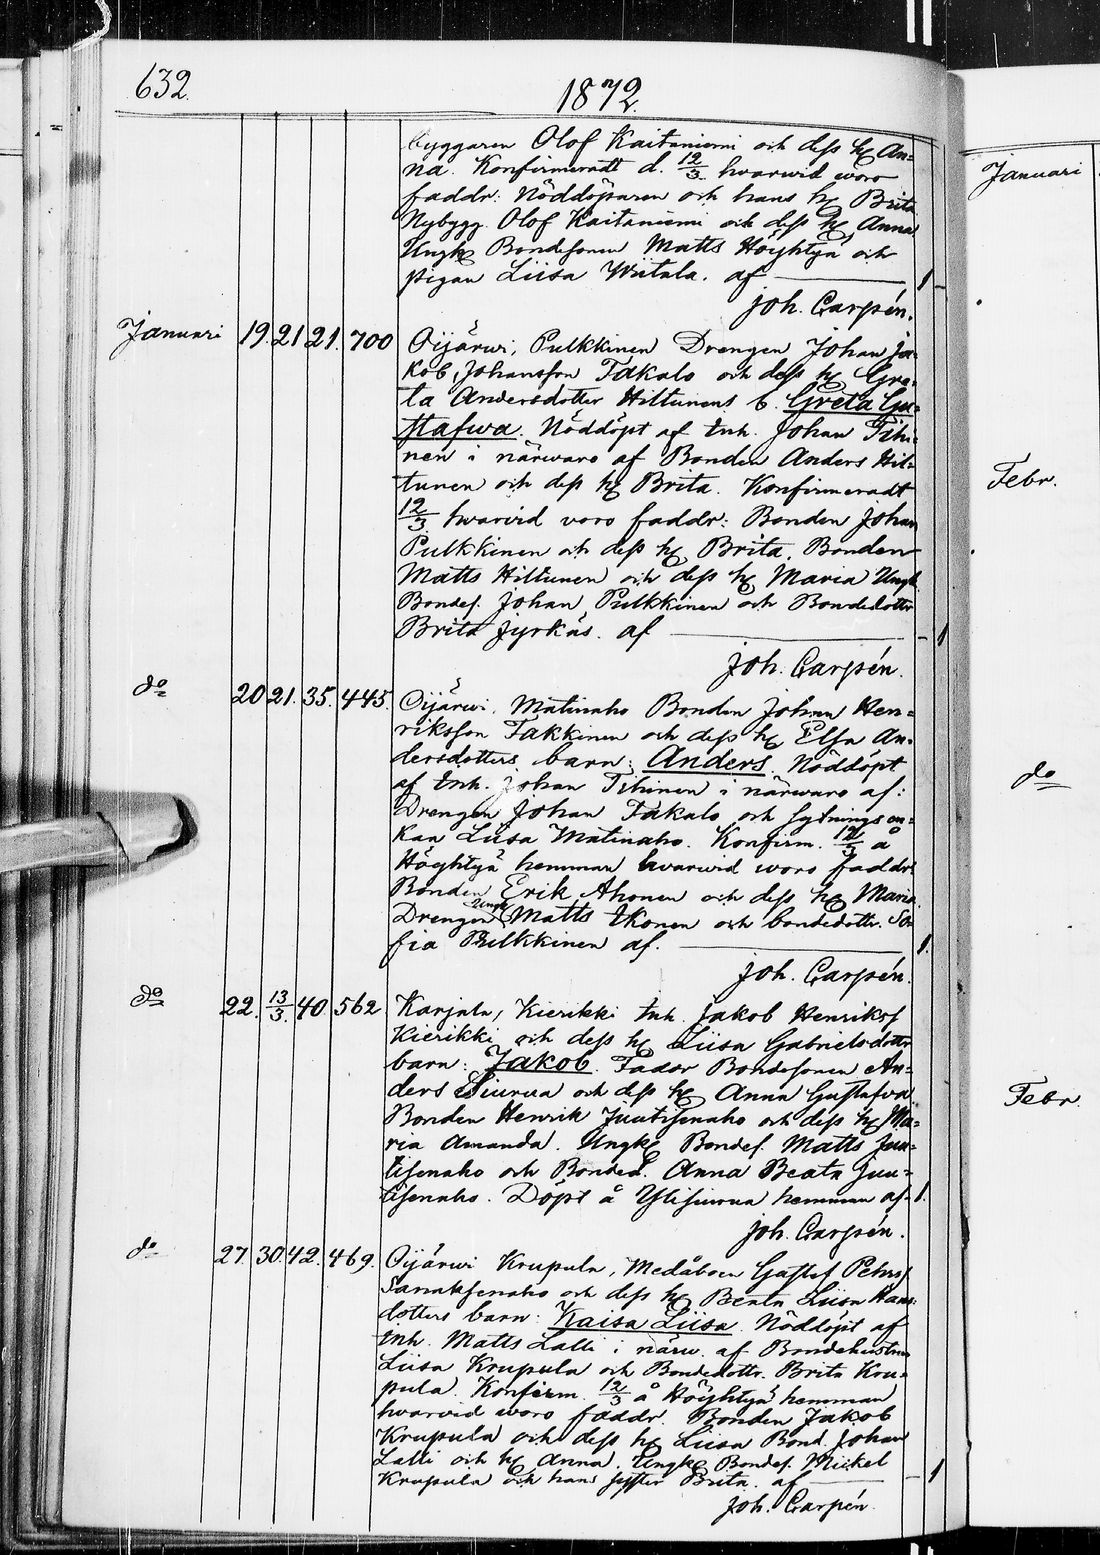 632.
1872.
byggaren Olof Kaitaniemi och dess hu An=
na. Konfirmeradt d. 12/3 hvarwid woro
faddr: Nöddöparen och hans hu Brita
Nybygg. Olof Kaitaniemi och dess hu Anna
Ungk Bondesonen Matts Höyhtyä och
pigan Liisa Writala. af — 1 —
Joh. Carpén.
Januari 19. 21 21. 700 Oijärwi, Pulkkinen Drengen Johan Ja=
kob Johansson Takalo och dess hu Gre=
ta Andersdotter Hiltunens b. Greta Gu=
stafwa. Nöddöpt af Inh. Johan Tihi=
nen i närwaro af Bonden Anders Hil=
tunen och dess hu Brita. Konfirmeradt
12/3 hwarvid voro faddr: Bonden Johan
Pulkkinen och dess hu Brita, Bonden
Matts Hiltunen och dess hu Maria Ungk
Bondes. Johan Pulkkinen och Bondedotter
Brita Jyrkäs. af — — 1
Joh. Carpén.
do 20 21. 35. 445. Oijärwi, Matinaho Bonden Johan Hen=
riksson Takkinen och dess hu Elsa An=
dersdotters barn: Anders Nöddöpt
af Inh. Johan Tihinen i närwaro af:
Drengen Johan Takalo och sytningsen=
kan Liisa Matinaho. Konfirm. 12/3 å
Höyhtyä hemman hwarwid woro faddr.
Bonden Erik Ahonen och dess hu Maria.
Drengen Ungk Matts Ikonen och bondedottr. So=
fia Pulkkinen af. — 1.
Joh. Carpén.
do 22. 13/3. 40. 562 Karjala, Kierikki Inh. Jakob Henrikss
Kierikki och dess hu Liisa Gabrielsdotter
barn: Jakob. Faddr Bondesonen An=
ders Siurua och dess hu Anna Gustafva
Bonden Henrik Juutisenaho och dess hu Ma=
ria Amanda. Ungk Bondes. Matts Juu=
tisenaho och Bonded. Anna Beata Juu=
tisenaho. Döpt å Ylisiurua hemman af — 1.
Joh. Carpén.
do 27. 30. 42. 469. Oijärwi Krupula, Medåboen Gustaf Pehrss
Sanaksenaho och dess hu Beata Liisa Hans=
dotters barn: Kaisa Liisa. Nöddöpt af
Inh. Matts Lalli i närw. af Bondehustrun
Liisa Krupula och Bondedottr. Brita Kru=
pula. Konfirm. 12/3 å Höyhtyä hemman
hwarvid woro faddr. Bonden Jakob
Krupula och dess hu Liisa Bond. Johan
Lalli och hu Anna. Ungk Bondes. Mickel
Krupula och hans syster Brita. af — — 1
Joh. Carpén.
Januari
Febr.
do
Febr.